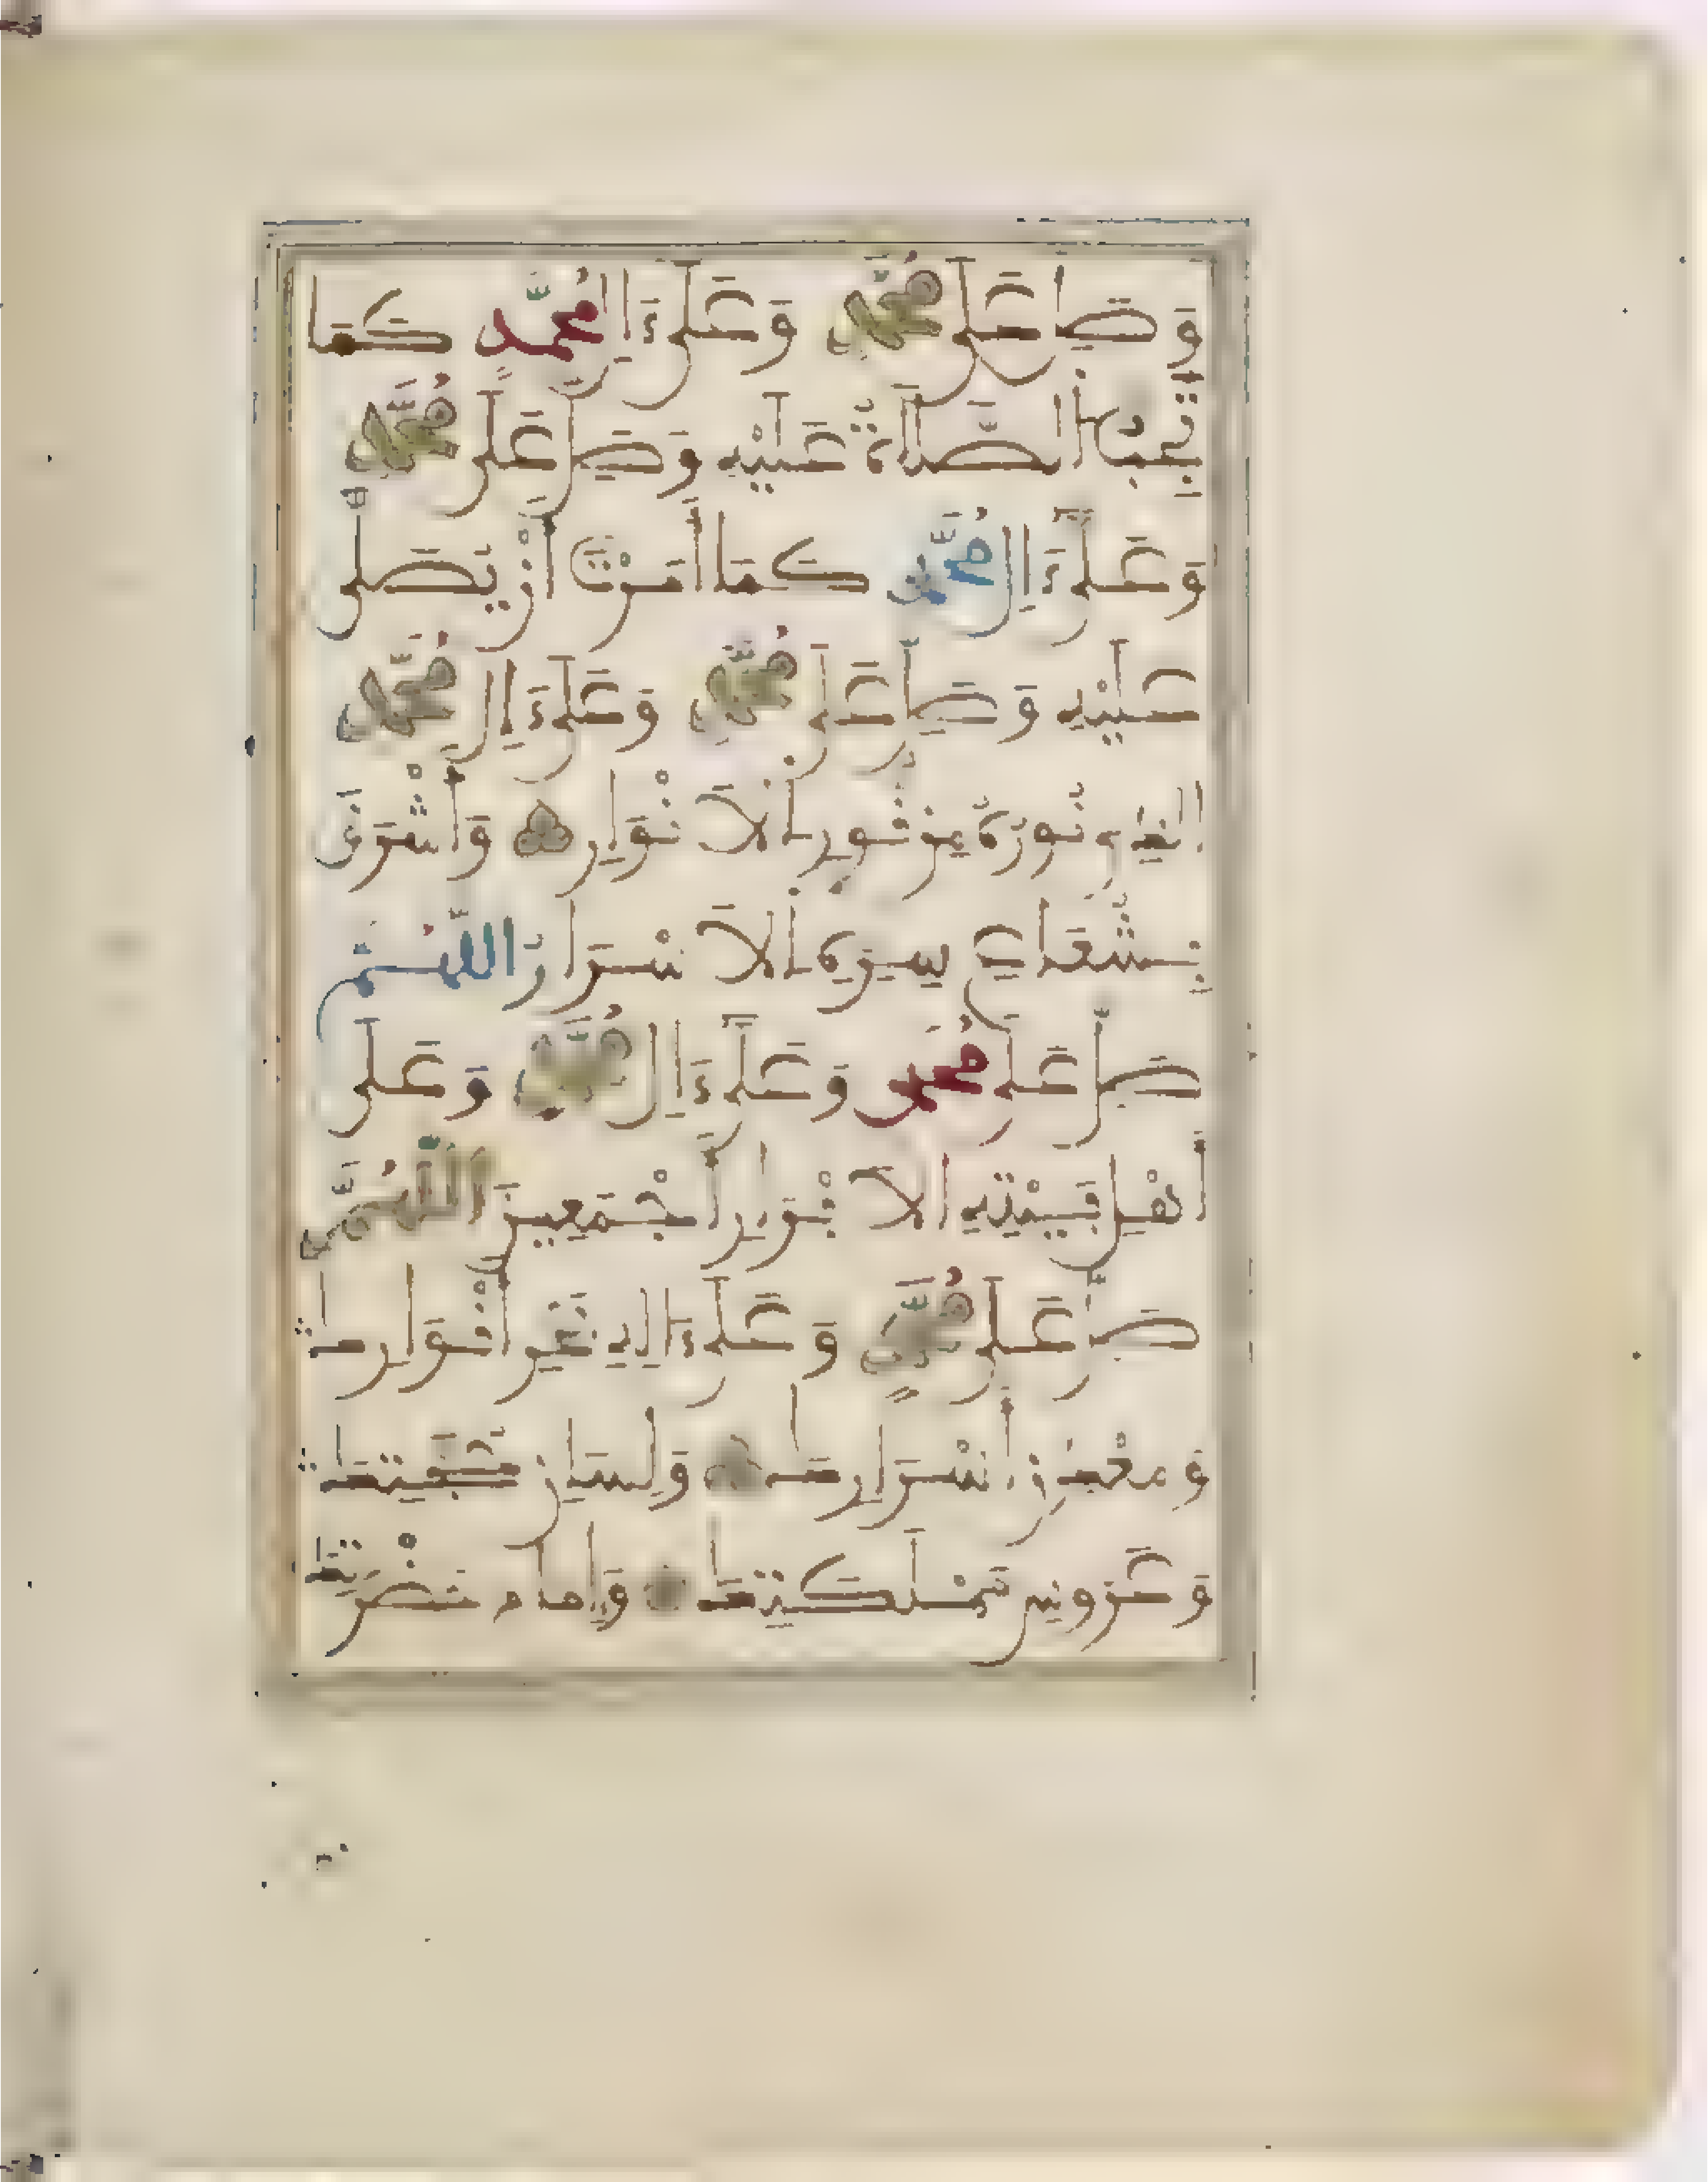 وَصَلِّ عَلَى مُحَمَّدٍ وَعَلَىٰ ءَالِ مُحَمَّدٍ كَمَا
تَجِبُ الصَّلَاةُ عَلَيْهِ وَصَلِّ عَلَى مُحَمَّدٍ
وَعَلَىٰ ءَالِ مُحَمَّدٍ كَمَا أَمَرْتَ أَنْ يُصَلَّى
عَلَيْهِ وَصَلِّ عَلَى مُحَمَّدٍ وَعَلَىٰ ءَالِ مُحَمَّدٍ
الَّذِي نُورُهُ مِن نُورِ الْأَنْوَارِ وَأَشْرَقَ
بِشُعَاعِ سِرِّهِ الْأَسْرَارُ اللَّهُمَّ
صَلِّ عَلَى مُحَمَّدٍ وَعَلَىٰ ءَالِ مُحَمَّدٍ وَعَلَى
أَهْلِ بَيْتِهِ الْأَبْرَارِ أَجْمَعِينَ اللَّهُمَّ
صَلِّ عَلَى مُحَمَّدٍ وَعَلَىٰ ءَالِهِ بَحْرِ أَنْوَارِكَ
وَمَعْدِنِ أَسْرَارِكَ وَلِسَانِ حُجَّتِكَ
وَعَرُوسِ مَمْلَكَتِكَ وَإِمَامِ حَضْرَتِكَ